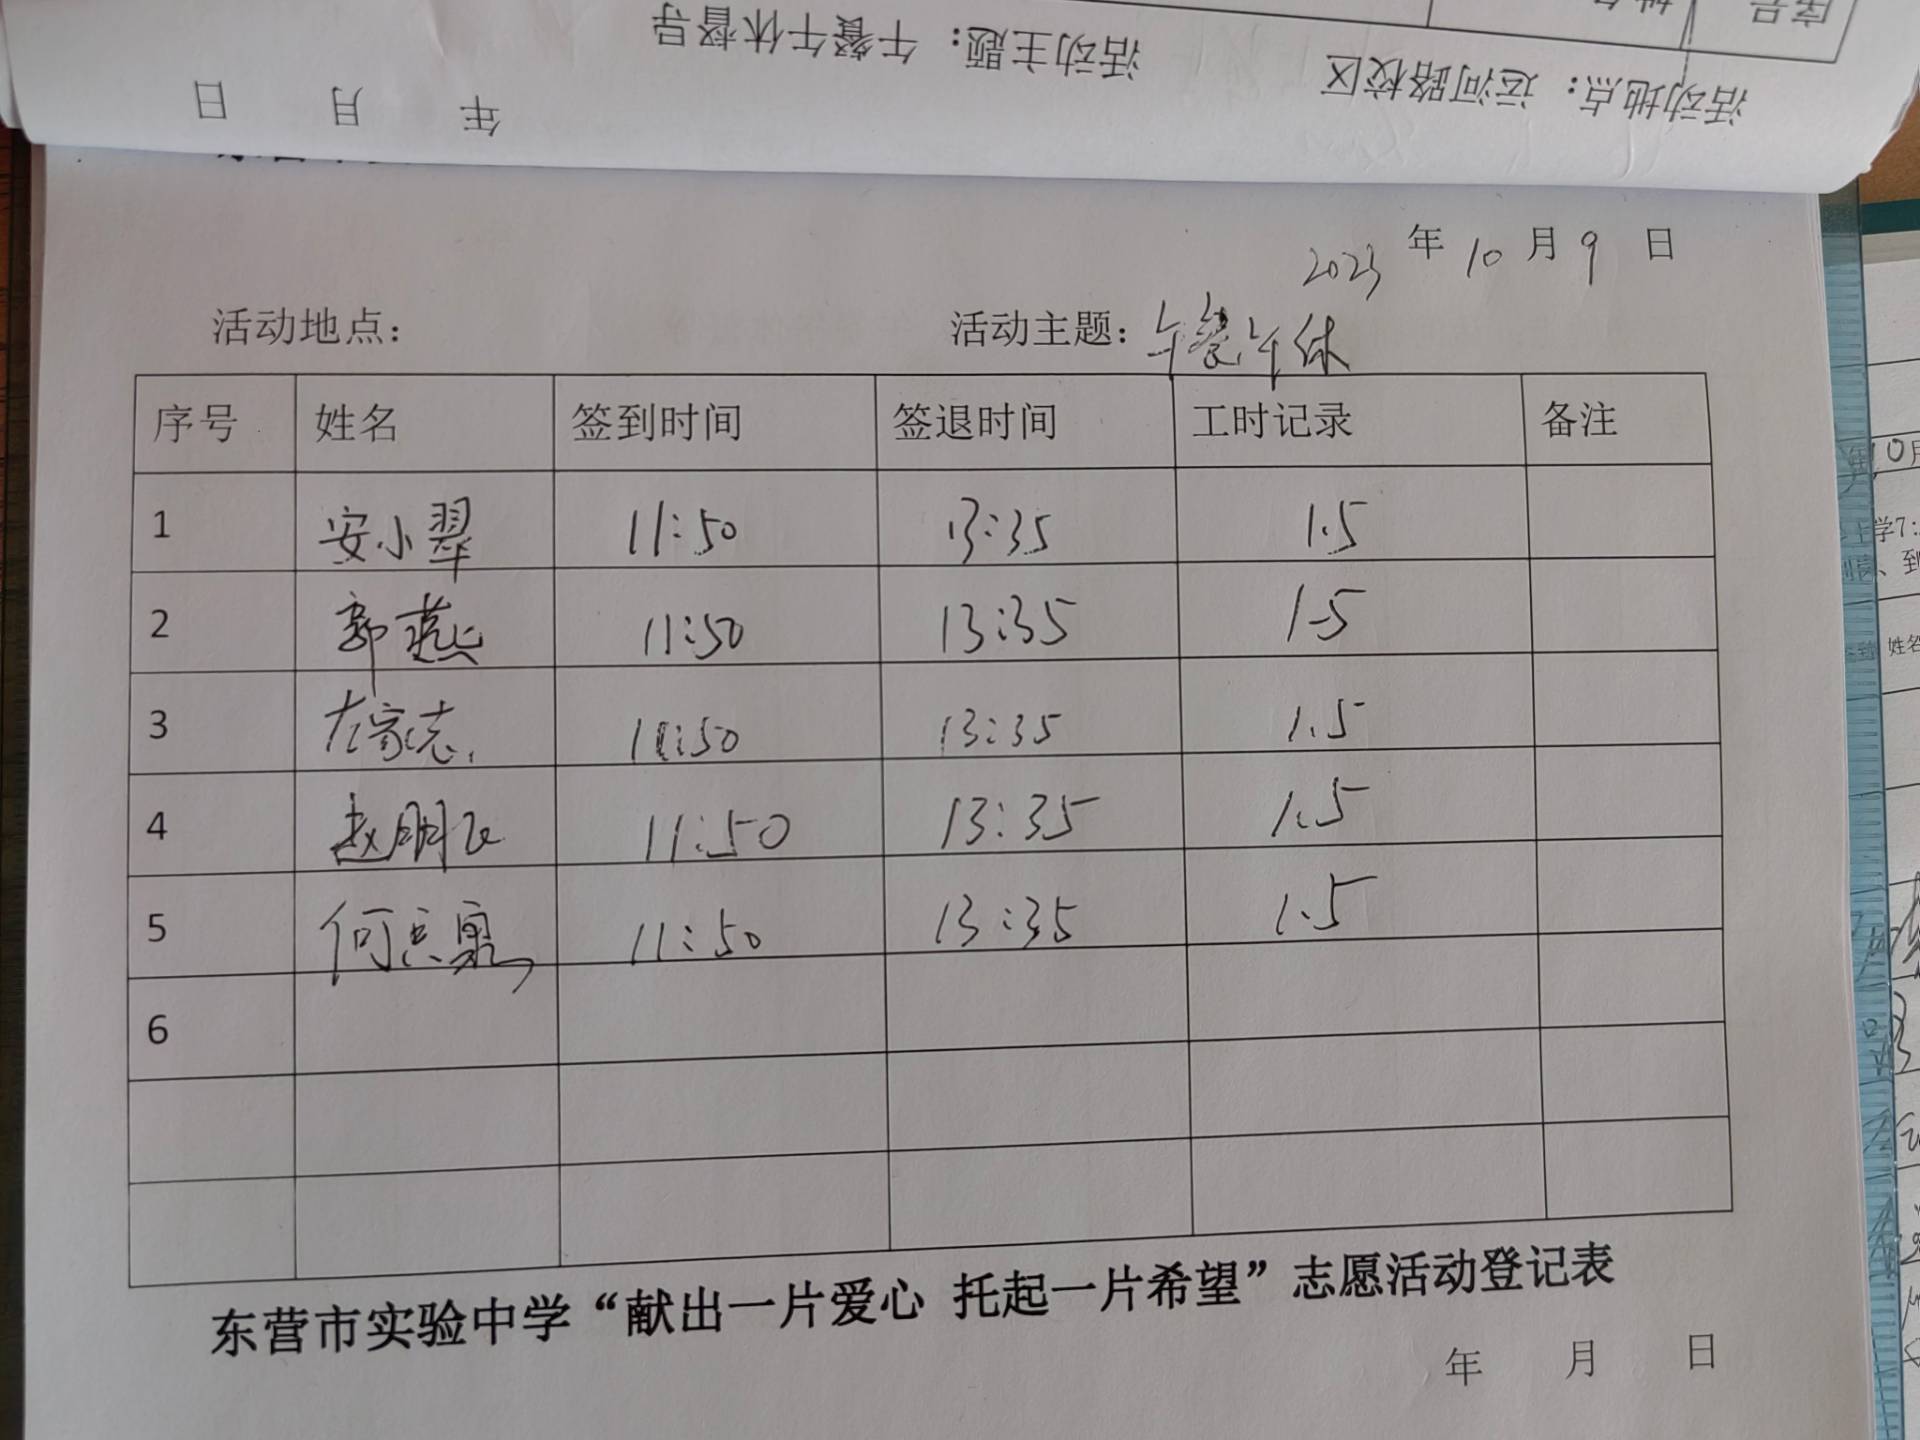 序号 姓名
活动地点：运河路校区 活动主题：午餐午休督导
年 月 日
2023年10月9日
活动地点： 活动主题：午餐午休
序号 姓名 签到时间 签退时间 工时记录 备注
1 安小翠 11:50 13:35 1.5
2 郭燕 11:50 13:35 1.5
3 左家志 11:50 13:35 1.5
4 赵朋飞 11:50 13:35 1.5
5 何 11:50 13:35 1.5
6
东营市实验中学“献出一片爱心 托起一片希望”志愿活动登记表
年 月 日
10月
学7:
到
姓名